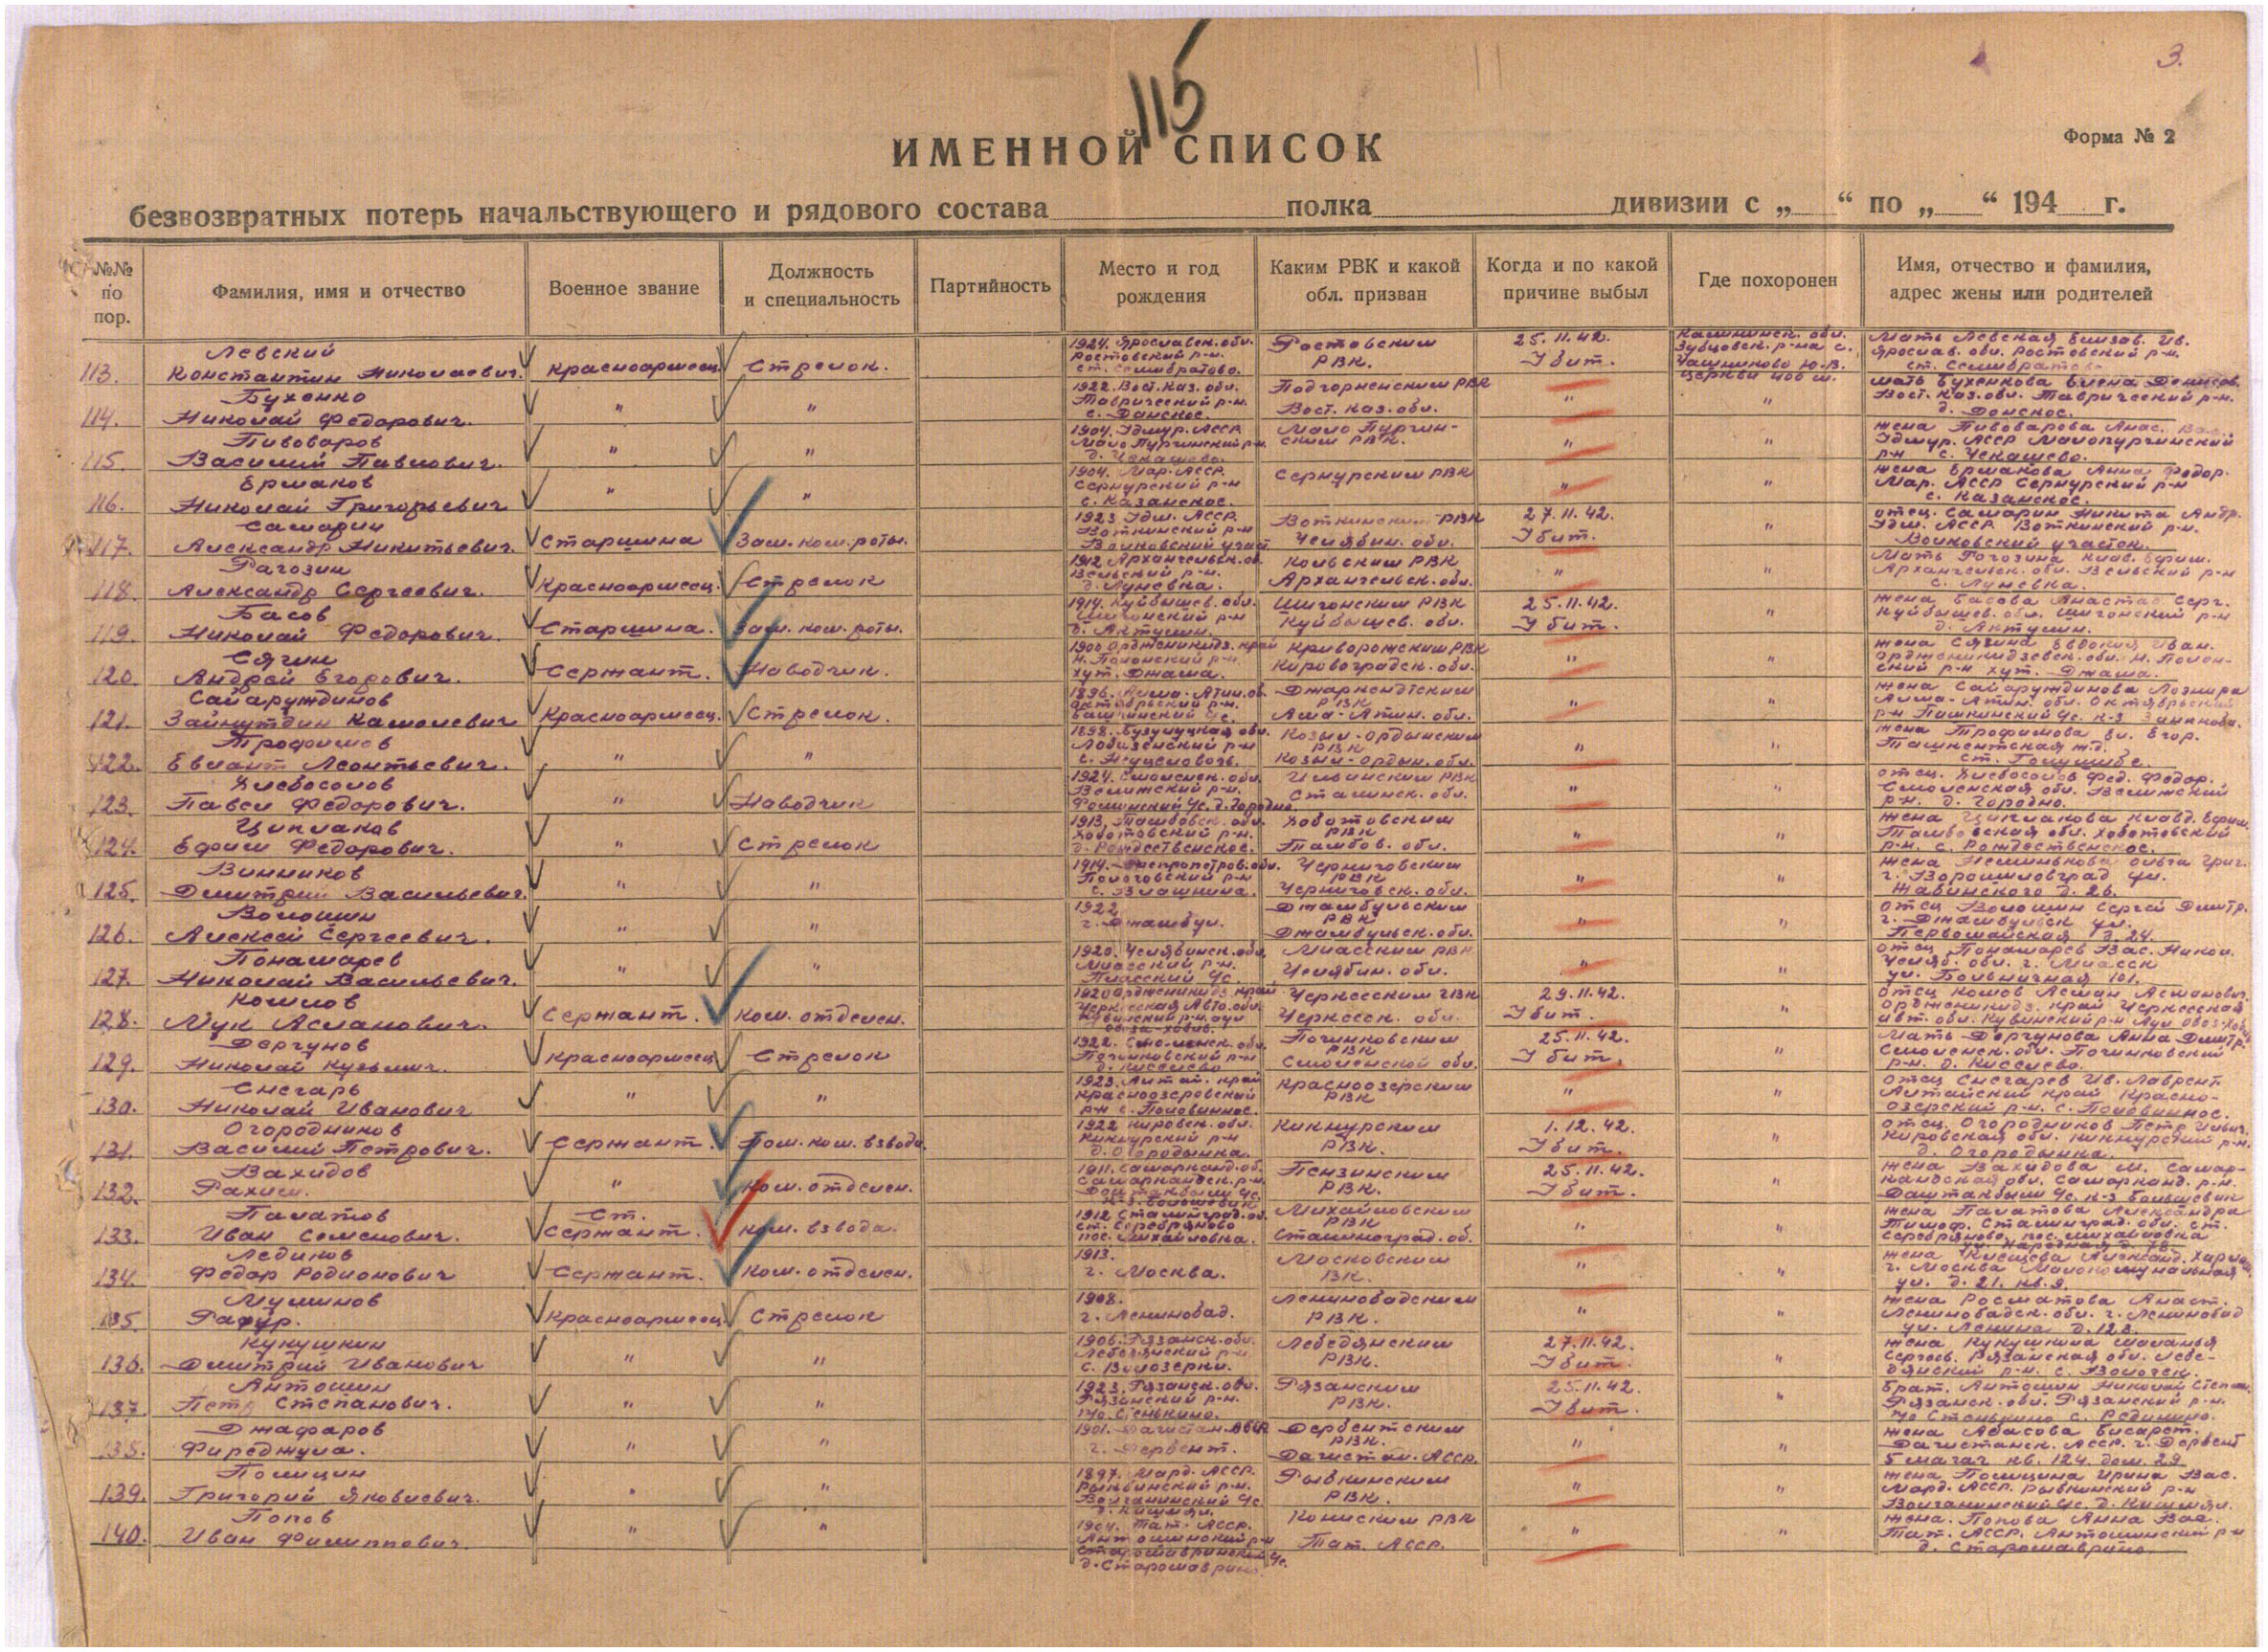 3.
115
ИМЕННОЙ СПИСОК
Форма № 2
безвозвратных потерь начальствующего и рядового состава полка дивизии с „ “ по „ “ 194 г.
№№ по пор.
Фамилия, имя и отчество
Военное звание
Должность и специальность
Партийность
Место и год рождения
Каким РВК и какой обл. призван
Когда и по какой причине выбыл
Где похоронен
Имя, отчество и фамилия, адрес жены или родителей
113. Левский Константин Николаевич. Красноармеец Стрелок. 1924. Ярославск. обл. Ростовский р-н. ст. Семибратово. Ростовским РВК. 25.11.42. Убит. Калининск. обл. Зубцовск. р-на с. Чашниково Ю.В. церкви 400 м. Мать Левская Елизав. Ив. Ярослав. обл. Ростовский р-н. ст. Семибратово
114. Бухенко Николай Федорович. " " 1922. Вост. Каз. обл. Таврический р-н. с. Донское. Подгорненским РВК Вост. Каз. обл. " " мать Бухенкова Елена Денисов. Вост. Каз. обл. Таврический р-н. д. Донское.
115. Пивоваров Василий Павлович. " " 1904. Удмур. АССР Мало Пургинский р-н. д. Чекашево. Мало Пургинским РВК. " " жена Пивоварова Анас. Вас. Удмур. АССР Малопургинский р-н с. Чекашево.
116. Ермаков Николай Григорьевич " " 1904. Мар. АССР. Сернурский р-н с. Казанское. Сернурским РВК " " жена Ермакова Анна Федор. Мар. АССР Сернурский р-н с. Казанское.
117. Самарин Александр Никитьевич. Старшина Зам. ком. роты. 1923 Удм. АССР. Воткинский р-н Волковский участ. Воткинским РВК Челябин. обл. 27.11.42. Убит. " отец. Самарин Никита Андр. Удм. АССР Воткинский р-н. Волковский участок.
118. Рагозин Александр Сергеевич. Красноармеец. Стрелок 1912 Архангельск. об. Вельский р-н. д. Луневка. Кольским РВК Архангельск. обл. " " Мать Рогозина Клав. Ефим. Архангельск. обл. Вельский р-н с. Луневка.
119. Басов Николай Федорович. Старшина. Зам. ком. роты. 1914. Куйбышев. обл. Шигонский р-н д. Актушин. Шигонским РВК Куйбышев. обл. 25.11.42. Убит. " жена Басова Анастас Серг. Куйбышев. обл. Шигонский р-н д. Актушин.
120. Сягин Андрей Егорович. Сержант. Наводчик. 1900 Орджоникидз. край хут. Джаша. Криворожским РВК Кировоградск. обл. " " жена Сягина Евдокия Иван. хут. Джаша.
121. Сайаруждинов Зайнутдин Камолевич Красноармеец. Стрелок. 1896. Алма-Атин. об. Октябрьский р-н. Джаркентским РВК Алма-Атин. обл. " " жена Сайаруждинова Алма-Атин. обл. Октябрьский р-н
122. Трофимов Евлант Леонтьевич. " " 1898. с. Козыл-Ордынским РВК Козыл-Ордын. обл. " " жена Трофимова Ел. Егор. Ташкентская ж.д. ст.
123. Хлебосолов Павел Федорович. " Наводчик 1924. Смоленск. обл. Велижский р-н. Фоминский с/с. д. Городно. Ильинским РВК Сталинск. обл. " " отец. Хлебосолов Фед. Федор. Смоленская обл. Велижский р-н. д. Городно.
124. Циплаков Ефим Федорович. " Стрелок 1913. Тамбовск. обл. Хоботовский р-н. д. Рождественское. Хоботовским РВК Тамбов. обл. " " жена Циплакова Клавд. Ефим. Тамбовская обл. Хоботовский р-н. с. Рождественское.
125. Винников Дмитрий Васильевич. " " 1914. Днепропетров. обл. Пологовский р-н с. Черниговским РВК Черниговск. обл. " " жена Ольга Григ. г. Ворошиловград ул. д. 26.
126. Волошин Алексей Сергеевич. " " 1922 г. Джамбул. Джамбульским РВК Джамбульск. обл. " " отец Волошин Сергей Дмитр. г. Джамбульск ул. Первомайская д. 24.
127. Понамарев Николай Васильевич. " " 1920. Челябинск. обл. Миасский р-н. Миасским РВК Челябин. обл. " " отец Понамарев Вас. Никол. Челяб. обл. г. Миасск ул. Больничная 101.
128. Кошлов Мук Асланович. Сержант. Ком. отделен. 1920 Орджоникидз. край Черкесская Авто. обл. Черкесским ГВК Черкесск. обл. 29.11.42. Убит. " отец Кошов Аслан Асланович. Орджоникидз. край Черкесская авт. обл. Кувинский р-н
129. Дергунов Николай Кузьмич. Красноармеец Стрелок 1922. Смоленск. обл. Починковский р-н д. Киселево Починковским РВК Смоленской обл. 25.11.42. Убит. " Мать Дергунова Анна Дмитр. Смоленск. обл. Починковский р-н. д. Киселево.
130. Снегарь Николай Иванович " " 1923. Алтай. край Красноозеровский р-н с. Половинное. Красноозерским РВК " " отец Снегарев Ив. Лаврент. Алтайский край Красноозерский р-н. с. Половинное.
131. Огородников Василий Петрович. Сержант. Пом. ком. взвода. 1922 Кировск. обл. Кикнурский р-н д. Огородынка. Кикнурским РВК. 1.12.42. Убит. " отец. Огородников Петр Иович. Кировская обл. Кикнурский р-н. д. Огородынка.
132. Вахидов Рахим. " Ком. отделен. 1911. Самарканд. об. Самаркандск. р-н. к-з. Большевик Пензинским РВК. 25.11.42. Убит. " жена Вахидова М. Самаркандская обл. Самарканд. р-н. к-з Большевик
133. Палатов Иван Семенович. Ст. Сержант. Ком. взвода. 1912 Сталинград. об. ст. Серебряково пос. Михайловка. Михайловским РВК Сталиноград. об. " " жена Палатова Александра Тимоф. Сталинград. обл. ст. Серебряково, пос. Михайловка ул. Народная д. 78.
134. Лединов Федор Родионович Сержант. Ком. отделен. 1913. г. Москва. Московским ВК. " " жена Александ. г. Москва ул. д. 21. кв. 9.
135. Муминов Сержант Красноармеец Стрелок 1908. г. Ленинобад. Ленинобадским РВК. " " жена Росматова Анаст. Ленинобадск. обл. г. Ленинобад ул. Ленина д. 128.
136. Кукушкин Дмитрий Иванович " " 1906. Рязанск. обл. Лебедянский р-н. с. Волозерки. Лебедянским РВК. 27.11.42. Убит. " жена Кукушкина Маланья Сергеев. Рязанская обл. Лебедянский р-н.
137. Антошин Петр Степанович. " " 1923. Рязанск. обл. Рязанский р-н. Рязанским РВК. 25.11.42. Убит. " Брат. Антошин Николай Степан. Рязанск. обл. Рязанский р-н.
138. Джафаров Фиреджула. " " 1901. Дагистан. АССР г. Дербент. Дербентским РВК. Дагистан. АССР. " " жена Абасова Бисарет. Дагистанск. АССР. г. Дербент 5 магал кв. 124. дом. 29
139. Полицин Григорий Яковлевич. " " 1897. Морд. АССР. Рыбкинский р-н. Рыбкинским РВК. " " жена Полицина Ирина Вас. Морд. АССР. Рыбкинский р-н
140. Попов Иван Филиппович. " " 1904. Тат. АССР. д. Старомаврино. РВК Тат. АССР. " " жена. Попова Анна Вас. Тат. АССР. д. Старомаврино